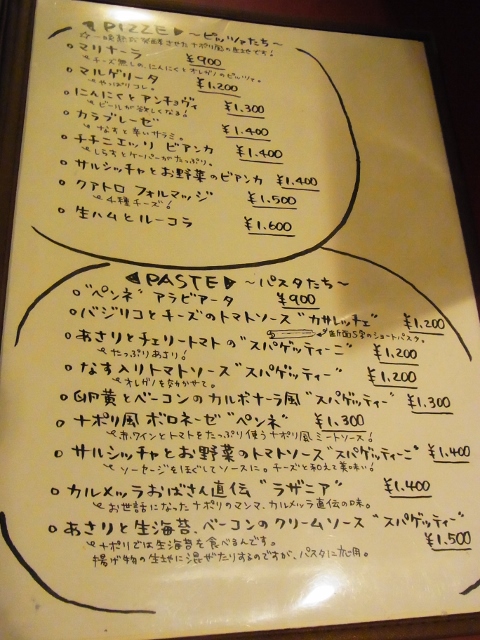 ◀PIZZE▶ 〜ピッツァたち〜
☆一晩熟成発酵させたナポリ風の生地です!
マリナーラ ¥900
チーズ無しの、にんにくとオレガノのピッツァ。
マルゲリータ ¥1.200
やっぱりコレ。
にんにくとアンチョヴィ ¥1.300
ビールが欲しくなる!
カラブレーゼ ¥1.400
なすと辛いサラミ。
チチニエッリ ビアンカ ¥1.400
しらすとケーパーがたっぷり。
サルシッチャとお野菜のビアンカ ¥1.400
クアトロ フォルマッジ ¥1.500
4種チーズ!
生ハムとルーコラ ¥1.600
◀PASTE▶ 〜パスタたち〜
"ペンネ" アラビアータ ¥900
バジリコとチーズのトマトソース "カサレッチェ" ¥1.200
断面S字のショートパスタ。
あさりとチェリートマトの "スパゲッティーニ" ¥1.200
たっぷりあさり!
なす入りトマトソース "スパゲッティー" ¥1.200
オレガノをきかせて。
卵黄とベーコンのカルボナーラ風 "スパゲッティー" ¥1.300
ナポリ風 ボロネーゼ "ペンネ" ¥1.300
赤ワインとトマトをたっぷり使うナポリ風ミートソース!
サルシッチャとお野菜のトマトソース "スパゲッティーニ" ¥1.400
ソーセージをほぐしてソースに。チーズと和えて美味い!
カルメッラおばさん直伝 "ラザニア" ¥1.400
お世話になったナポリのマンマ、カルメッラ直伝の味。
あさりと生海苔、ベーコンのクリームソース "スパゲッティー" ¥1.500
ナポリでは生海苔を食べるんです。
揚げ物の生地に混ぜたりするのですが、パスタに応用。